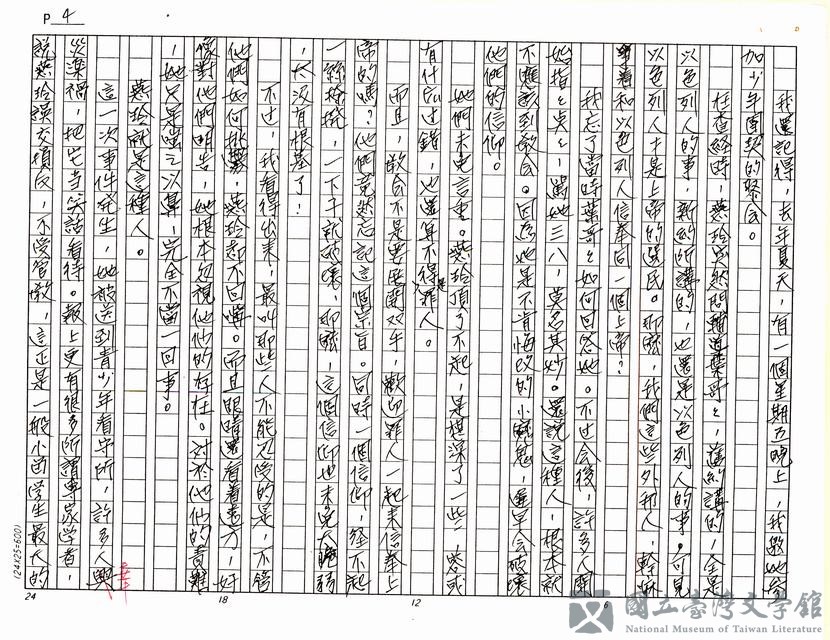 P 4
我還記得，去年夏天，有一個星期五晚上，我邀她參
加少年團契的聚會。
在查經時，燕玲突然問輔導葉哥々，舊約講的，全是
以色列人的事，新約所講的，也還是以色列人的事。可見
以色列人才是上帝的選民。耶穌，我們這些外邦人，幹嘛
著和以色列人信奉同一個上帝？
我忘了當時葉哥々如何回答她。不过会後，許多人開
始指々点々，罵她三八，莫名其妙。還說這種人，根本就
不應該到教会。因為她是不肯悔改的小魔鬼，遲早会破壞
他們的信仰。
她們未免言重。燕玲頂了不起，是想深了一些，等或
有什麼过錯，也還算不得是罪人。
而且，教会不是要張開双手，歡迎罪人一起來信奉上
帝的嗎？他們竟然忘記這個宗旨。同時一個信仰，経不起
一絲挑撥，一下子就破壞，耶穌，這個信仰也未免太脆弱
，太沒有根基了！
不过，我看得出來，最叫那些人不能忍受的是，不管
他們如何挑釁，燕玲却不回嘴。而且眼睛還看着遠方，好
像對他們明告，她根本忽視他们的存在。对於他们的責難
，她只是嗤之以鼻，完全不當一回事。
燕玲就是這種人。
這一次事件発生，她被送到青少年看守所，許多人興
災樂禍，把它当笑話看待。報上更有很多所謂專家学者，
說燕玲誤交損友，不受管教，這正是一般小留学生最大的
24
18
12
6
(24×25=600)
國立臺灣文學館
National Museum of Taiwan Literature